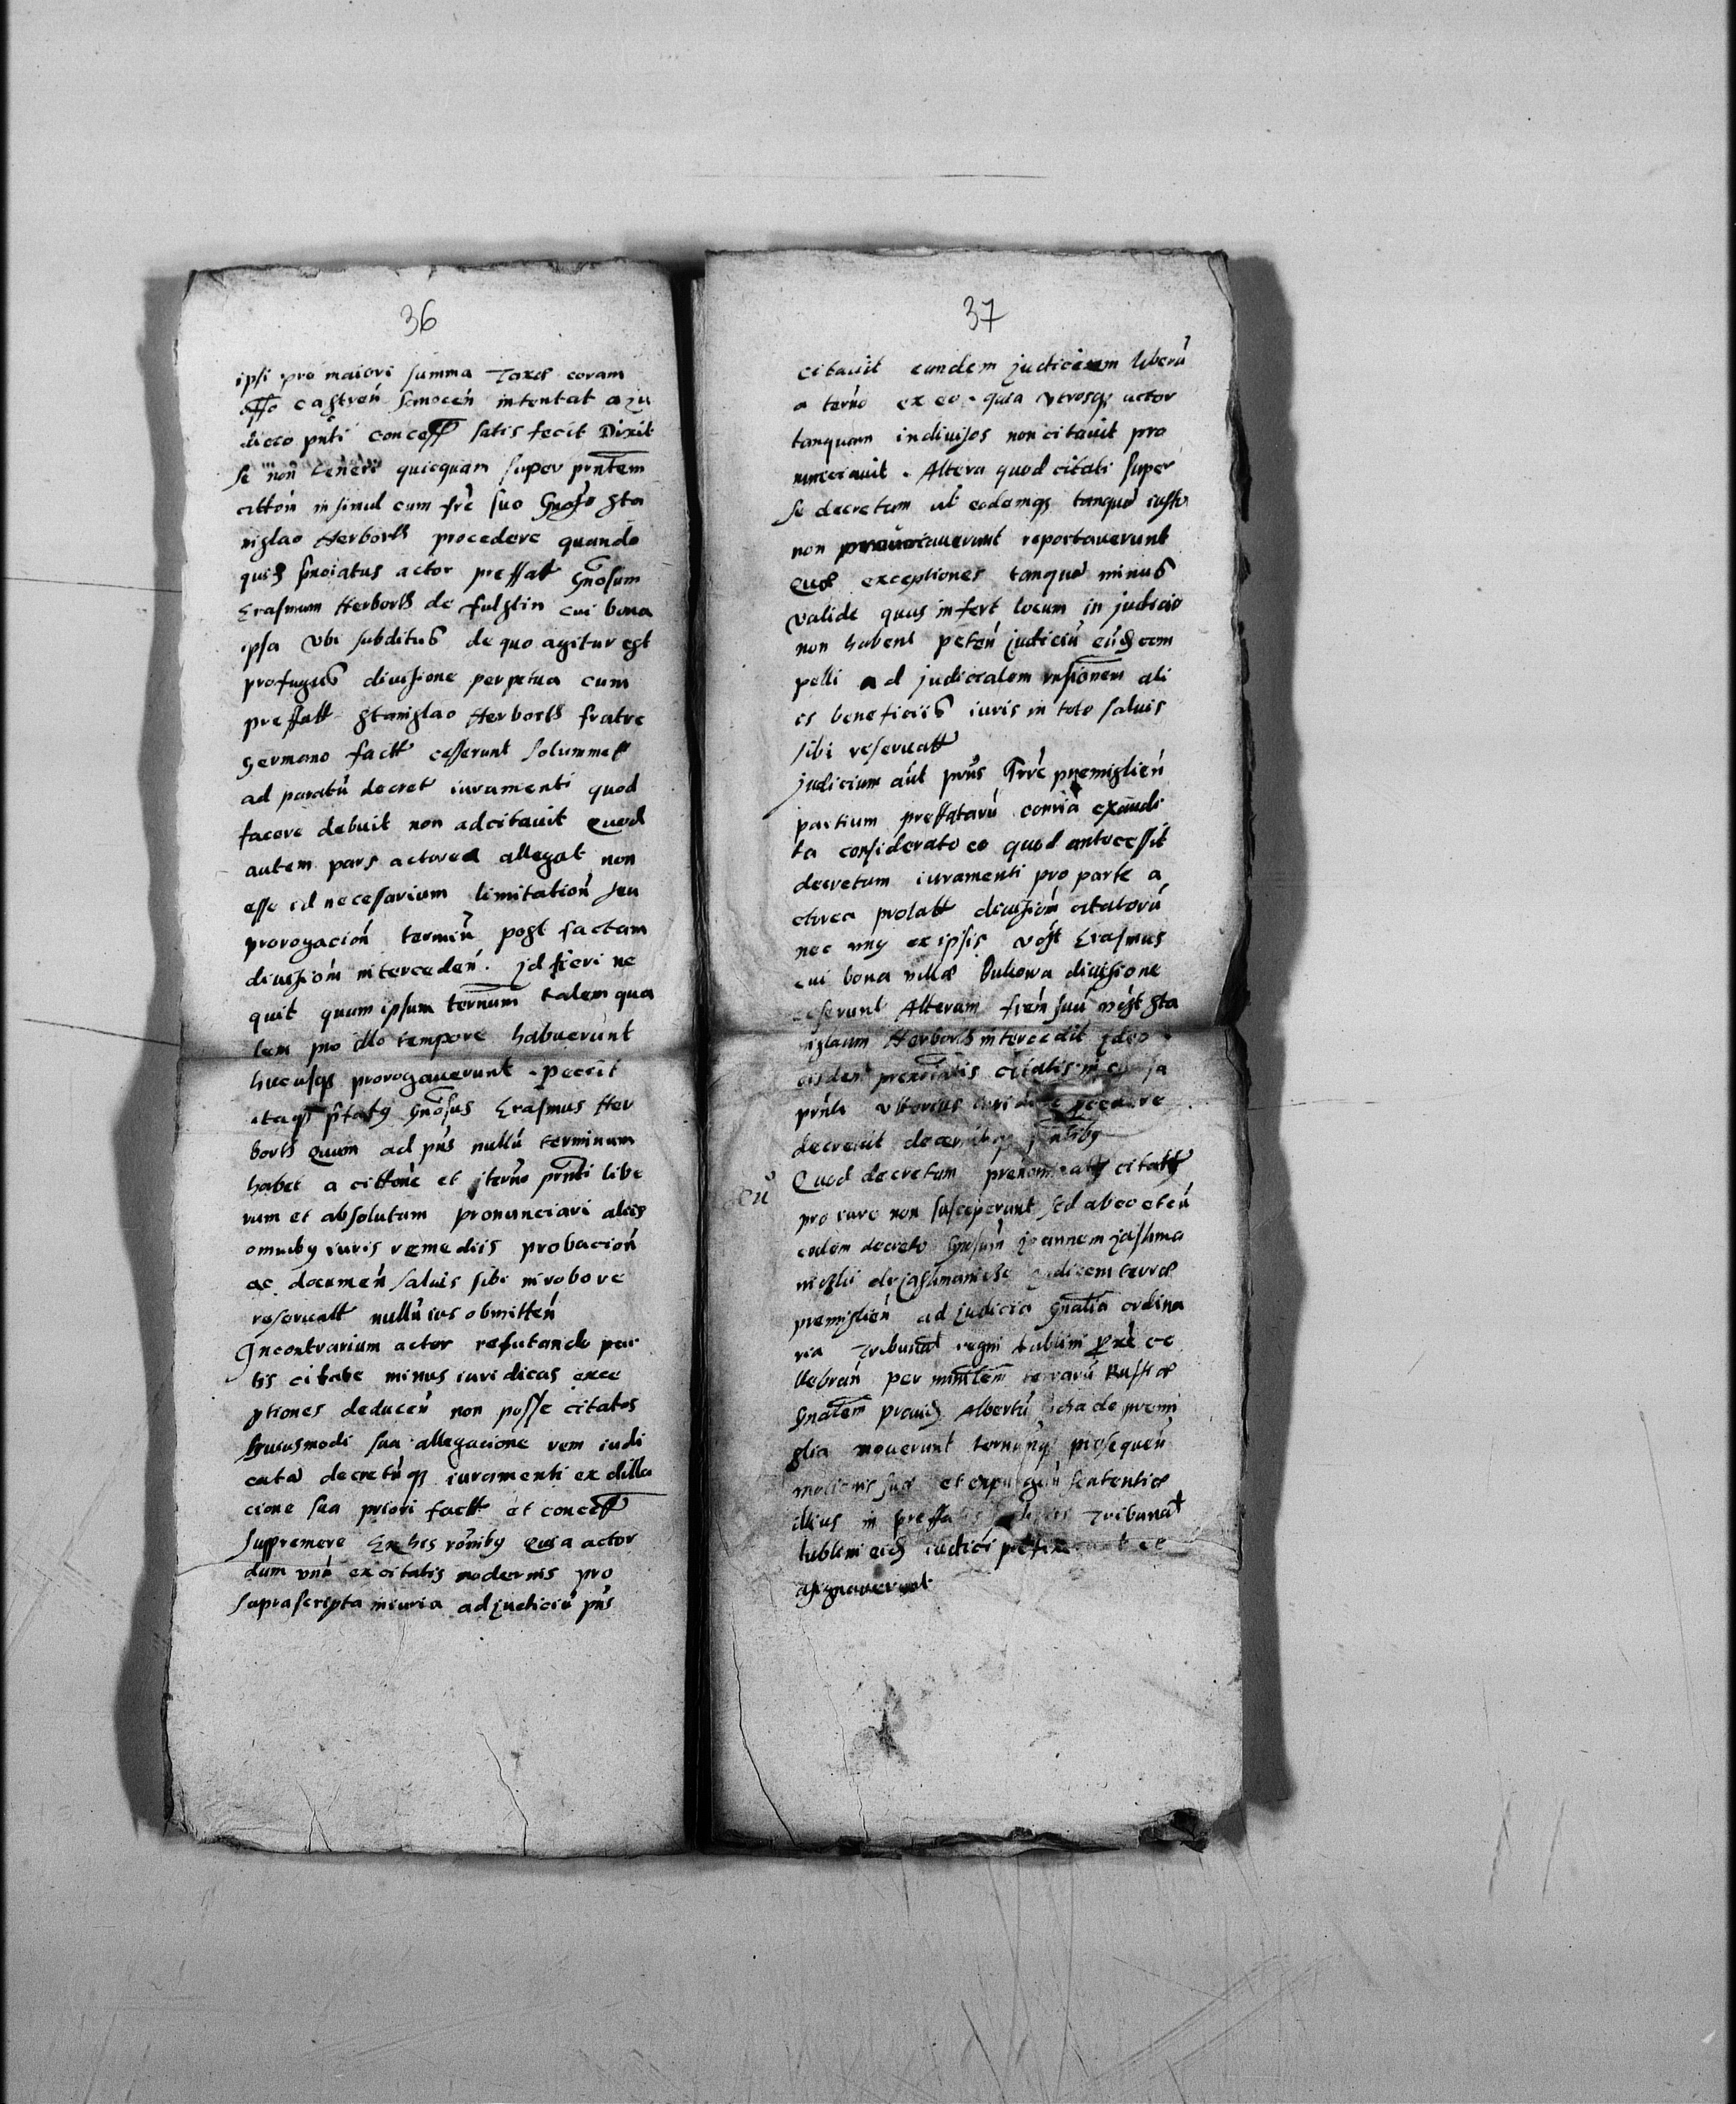 36
ipsi pro maiori summa Taxæ coram
offo castren̄ Sanocen̄ intentat a ju
dicio pn̄ti concess satis fecit Dixit
se non teneri quicquam super pn̄tem
citton̄ insimul cum fr̄e suo Gnoso Sta
nislao Herborth procedere quando
quid sn̄oiatus actor preffatt Gnosum
Erasmum Herborth de fulstin cui bona
ipsa vbi subditus de quo agitur est
profugus diuisione perpetua cum
preffatt Stanislao Herborth fratre
germano factt cesserunt solummo
ad paratū decret iuramenti quod
facere debuit non adcitauit Quod
autem pars actorea allegat non
esse id necessarium limitation̄ seu
prorogacion̄ termin̄ post factam
diuision̄ interceden̄. Jd fieri ne
quit quum ipsum ternum talem qua
lem pro illo tempore habuerunt
hucusq prorogauerunt. Peciit
itaq p̄fatꝰ Gnosus Erasmus Her
borth Quum ad pn̄s nullū terminum
habet a cittone et termo pn̄ti libe
rum et absolutum pronunciari aliis
omnibꝰ iuris remediis probacion̄
ac documen̄ saluis sibi in robore
reseruatt nullū ius obmitten̄
Jncontrarium actor refutando par
tis citate minus iuridicas exce
ptiones deducen̄ non posse citatos
huiusmodi sua allegacione rem iudi
catā decretūq iuramenti ex dilla
cione sua priori factt et concess
suppremere Ex his ronibꝰ Quia actor
dum vnū ex citatis modernis pro
suprascripta iniuria ad judiciū pn̄s
37
citauit eundem judicium liberū
a termo ex eo quia vtrosq actor
tanquam indiuisos non citauit pro
nunciauit. Altera quod citati super
se decretum ut eodemq tanquā iusto
non prouocauerunt reportauerunt
Quæ exceptiones tanquā minus
valide quas infert locum in judicio
non habent peten̄ judiciū eūd com
pelli ad judicialem rn̄sionem ali
is beneficiis iuris in toto saluis
sibi reseruatt
Judicium aūt pn̄s Trr̄e premislien̄
partium preffatarū con̄ria exaudi
ta considerato eo quod antecessit
decretum iuramenti pro parte a
ctorea prolatt diuision̄ citatorū
nec vnꝰ ex ipsis Erasmus
cui bona villæ Bukowa diuisione
cesserunt Alterum fren̄ suū Sta
nislaum Herborth intercedit Jdeo
eisdem citatis in causa
pn̄ti vlterius iuridice procedere
decreuit
Quod decretum citatt
pro iure non susceperunt sed ab eo et eū
eodem decreto Gnosum Joannem Jashma
judicem terræ
premislien̄ ad judicia Gnalia ordina
ria Tribunal regni Lublini ce
lebran̄ per min̄lem terrarū Russiæ
Gnalem prouid Albertū de premi
slia mouerunt prosequen̄
motionis suæ et sententiæ
illius in Tribunal
lublini eid iudici et
assignauerunt